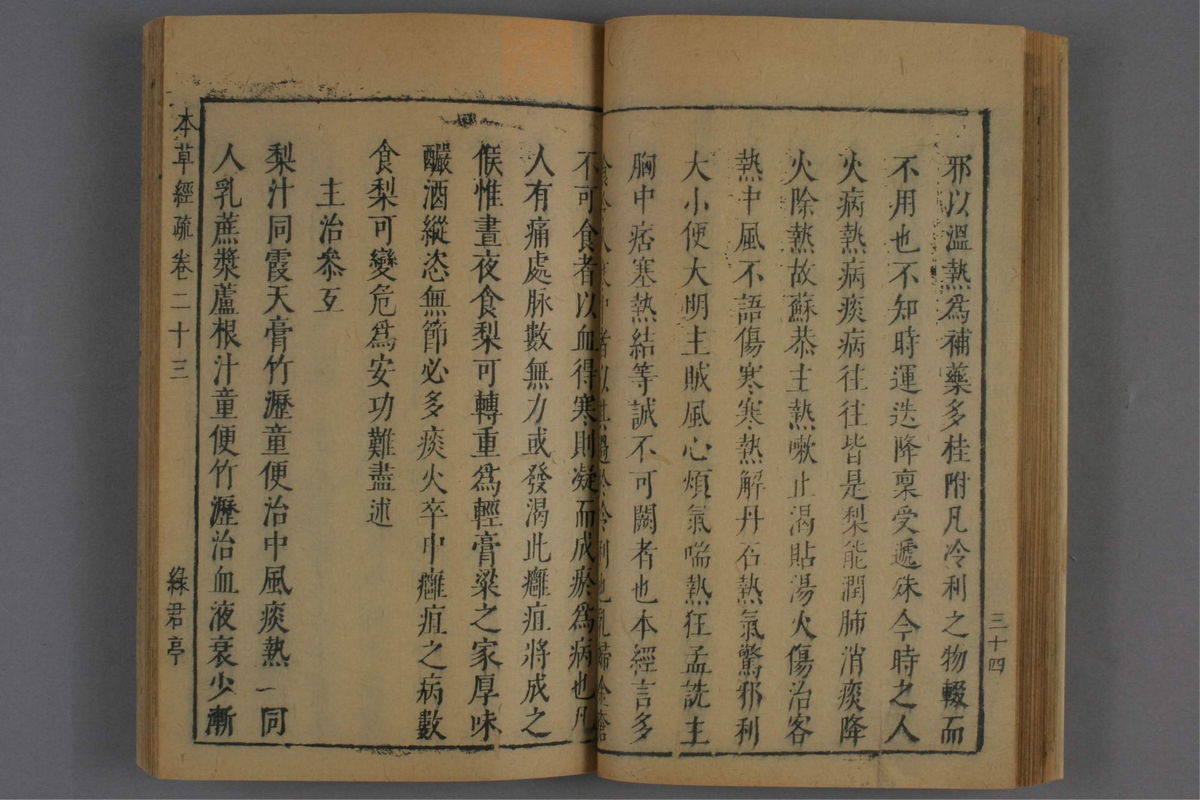 三十四
邪以溫熱爲補藥多桂附凡冷利之物輟而
不用也不知時運迭降稟受遞殊今時之人
火病熱病痰病往往皆是梨能潤肺消痰降
火除熱故蘇恭主熱嗽止渴貼湯火傷治客
熱中風不語傷寒寒熱解丹石熱氣驚邪利
大小便大明主賊風心煩氣喘熱狂孟詵主
胸中痞塞熱結等誠不可闕者也本經言多
食令人寒中者以其過於冷利也乳婦金瘡
不可食者以血得寒則凝而成瘀爲病也凡
人有痛處脉數無力或發渴此癰疽將成之
候惟晝夜食梨可轉重爲輕膏粱之家厚味
釅酒縱恣無節必多痰火卒中癰疽之病數
食梨可變危爲安功難盡述
主治參互
梨汁同霞天膏竹瀝童便治中風痰熱 一同
人乳蔗漿蘆根汁童便竹瀝治血液衰少漸
本草經疏卷二十三
綠君亭